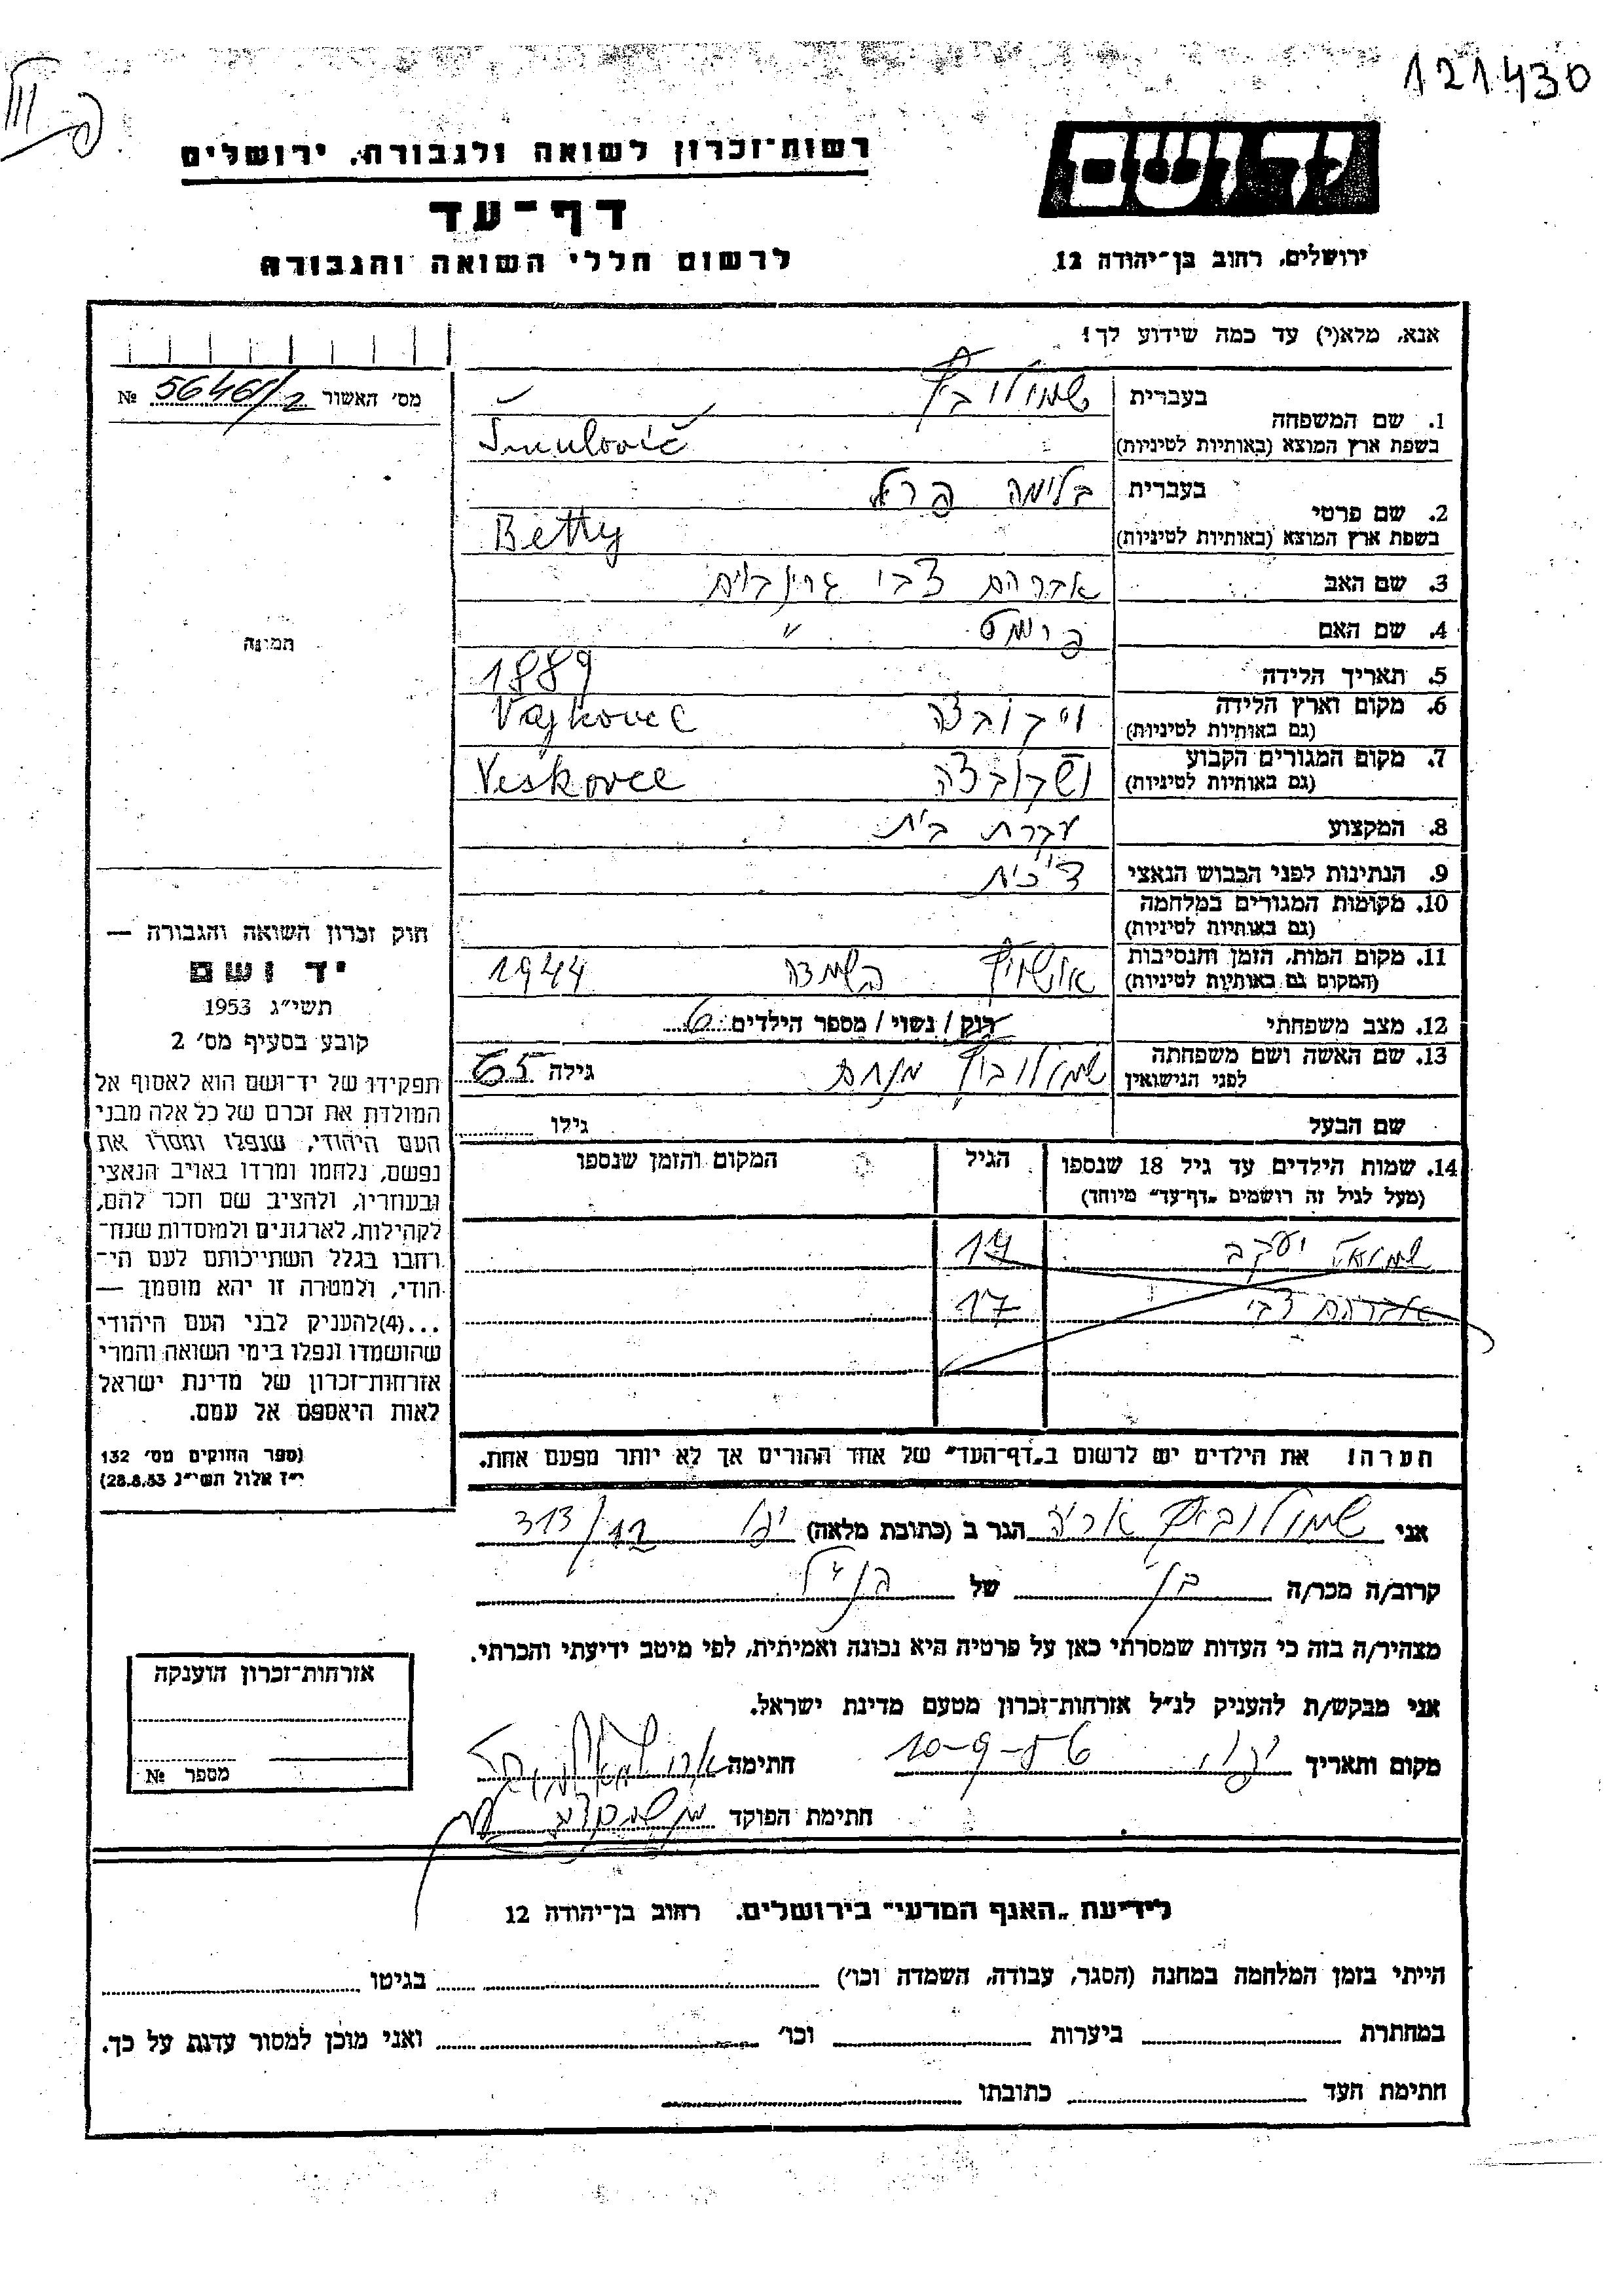 121430
רשות־זכרון לשואה ולגבורה, ירושלים
יד ושם
דף־עד
לרשום חללי השואה והגבורה
ירושלים, רחוב בן־יהודה 12
אנא, מלא(י) עד כמה שידוע לך!
מס׳ האשור 56461/2 №
1. שם המשפחה
בעברית שמולוביץ
בשפת ארץ המוצא (באותיות לטיניות) Šmulovič
2. שם פרטי
בעברית בלימה פרל
בשפת ארץ המוצא (באותיות לטיניות) Betty
3. שם האב אברהם צבי גרינבוים
4. שם האם פרומט "
תמונה
5. תאריך הלידה 1889
6. מקום וארץ הלידה
(גם באותיות לטיניות) ויקובצה Vajkovce
7. מקום המגורים הקבוע
(גם באותיות לטיניות) ושקובצה Veškovce
8. המקצוע עקרת בית
9. הנתינות לפני הכבוש הנאצי צ׳כית
10. מקומות המגורים במלחמה
(גם באותיות לטיניות)
11. מקום המות, הזמן והנסיבות
(המקום גם באותיות לטיניות) אושויץ השמדה 1944
12. מצב משפחתי רוק / נשוי / מספר הילדים 6
13. שם האשה ושם משפחתה
לפני הנישואין שמולוביץ מנחם גילה 65
שם הבעל גילו
14. שמות הילדים עד גיל 18 שנספו
(מעל לגיל זה רושמים „דף־עד״ מיוחד)
הגיל
המקום והזמן שנספו
שמואל יעקב
אברהם צבי 17
הערה! את הילדים יש לרשום ב„דף־העד״ של אחד ההורים אך לא יותר מפעם אחת.
חוק זכרון השואה והגבורה —
יד ושם
תשי״ג 1953
קובע בסעיף מס׳ 2
תפקידו של יד־ושם הוא לאסוף אל
המולדת את זכרם של כל אלה מבני
העם היהודי, שנפלו ומסרו את
נפשם, נלחמו ומרדו באויב הנאצי
ובעוזריו, ולהציב שם וזכר להם,
לקהילות, לארגונים ולמוסדות שנח־
רחבו בגלל השתייכותם לעם הי־
הודי, ולמטרה זו יהא מוסמך —
...(4)להעניק לבני העם היהודי
שהושמדו ונפלו בימי השואה והמרי
אזרחות־זכרון של מדינת ישראל
לאות היאספם אל עמם.
(ספר החוקים מס׳ 132
י״ז אלול תשי״ג 28.8.53)
אני שמולוביץ אריה הגר ב (כתובת מלאה) יפו 313/12
קרוב/ה מכר/ה בן של הנ״ל
מצהיר/ה בזה כי העדות שמסרתי כאן על פרטיה היא נכונה ואמיתית, לפי מיטב ידיעתי והכרתי.
אני מבקש/ת להעניק לנ״ל אזרחות־זכרון מטעם מדינת ישראל.
מקום ותאריך יפו 10-9-56 חתימה
חתימת הפוקד
אזרחות־זכרון הוענקה
מספר №
לידיעת „האגף המדעי״ בירושלים. רחוב בן־יהודה 12
הייתי בזמן המלחמה במחנה (הסגר, עבודה, השמדה וכו׳) בגיטו
במחתרת ביערות וכו׳ ואני מוכן למסור עדות על כך.
חתימת העד כתובתו